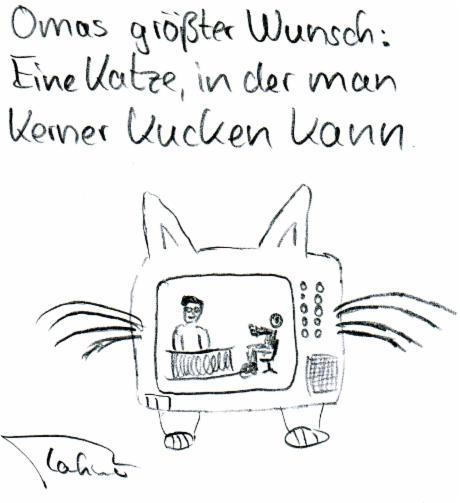 Omas größter Wunsch:
Eine Katze, in der man
Kerner kucken kann.